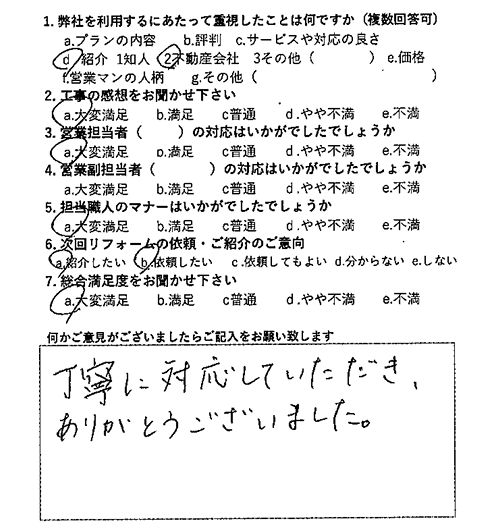 1. 弊社を利用するにあたって重視したことは何ですか（複数回答可）
a.プランの内容 b.評判 c.サービスや対応の良さ
d 紹介 1知人 2不動産会社 3その他（ ） e.価格
f.営業マンの人柄 g.その他（ ）
2. 工事の感想をお聞かせ下さい
a.大変満足 b.満足 c普通 d.やや不満 e.不満
3. 営業担当者（ ）の対応はいかがでしたでしょうか
a.大変満足 b.満足 c普通 d.やや不満 e.不満
4. 営業副担当者（ ）の対応はいかがでしたでしょうか
a.大変満足 b.満足 c普通 d.やや不満 e.不満
5. 担当職人のマナーはいかがでしたでしょうか
a.大変満足 b.満足 c普通 d.やや不満 e.不満
6. 次回リフォームの依頼・ご紹介のご意向
a.紹介したい b.依頼したい c.依頼してもよい d.分からない e.しない
7. 総合満足度をお聞かせ下さい
a.大変満足 b.満足 c普通 d.やや不満 e.不満
何かご意見がございましたらご記入をお願い致します
丁寧に対応していただき、
ありがとうございました。